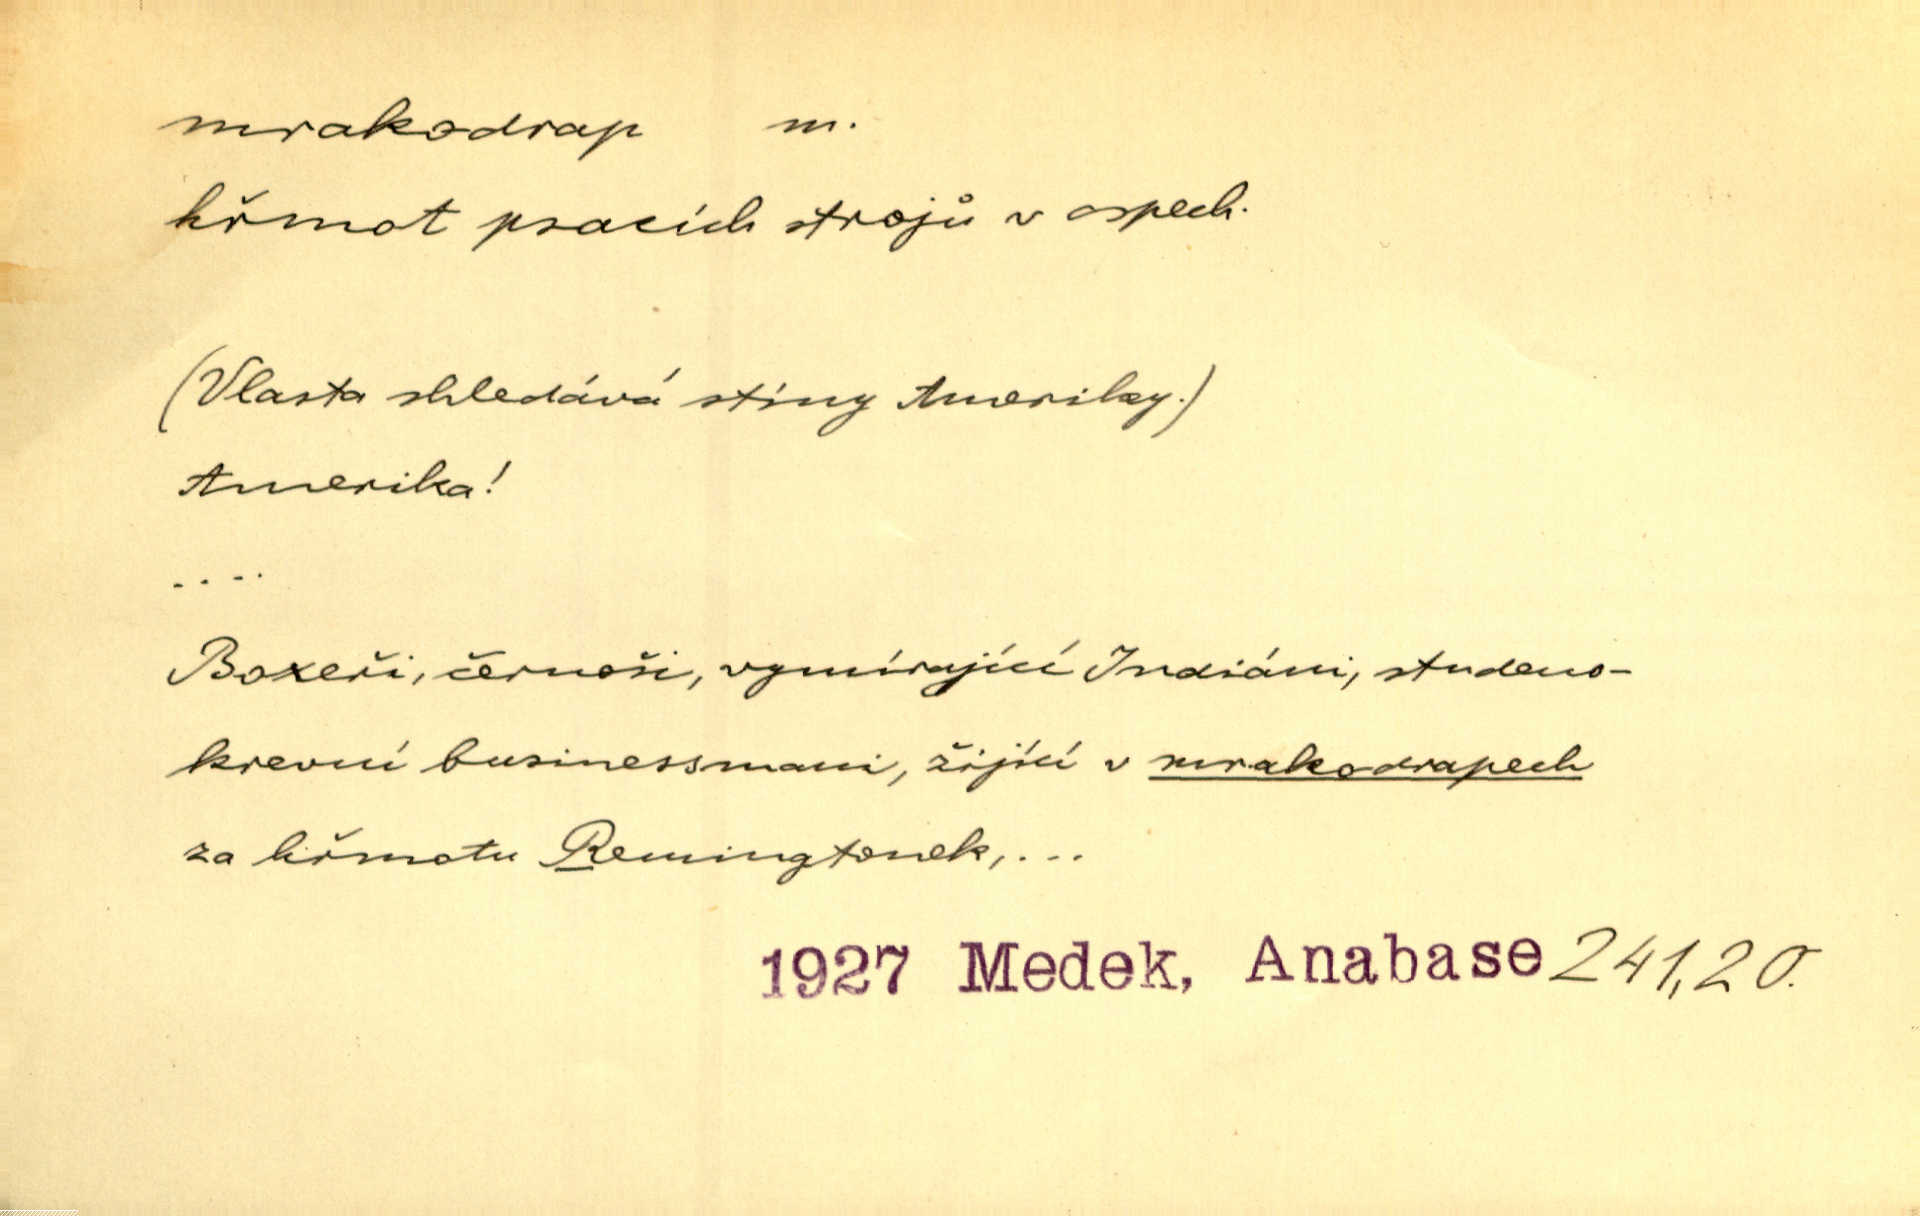 mrakodrap m.
hřmot psacích strojů v ospech.
(Vlasta shledává stíny Ameriky.)
Amerika!
....
Boxeři, černoši, vymírající Indiáni, studeno-
krevní businessmani, žijící v mrakodrapech
za hřmotu Remingtonek, ...
1927 Medek, Anabase 241,20.